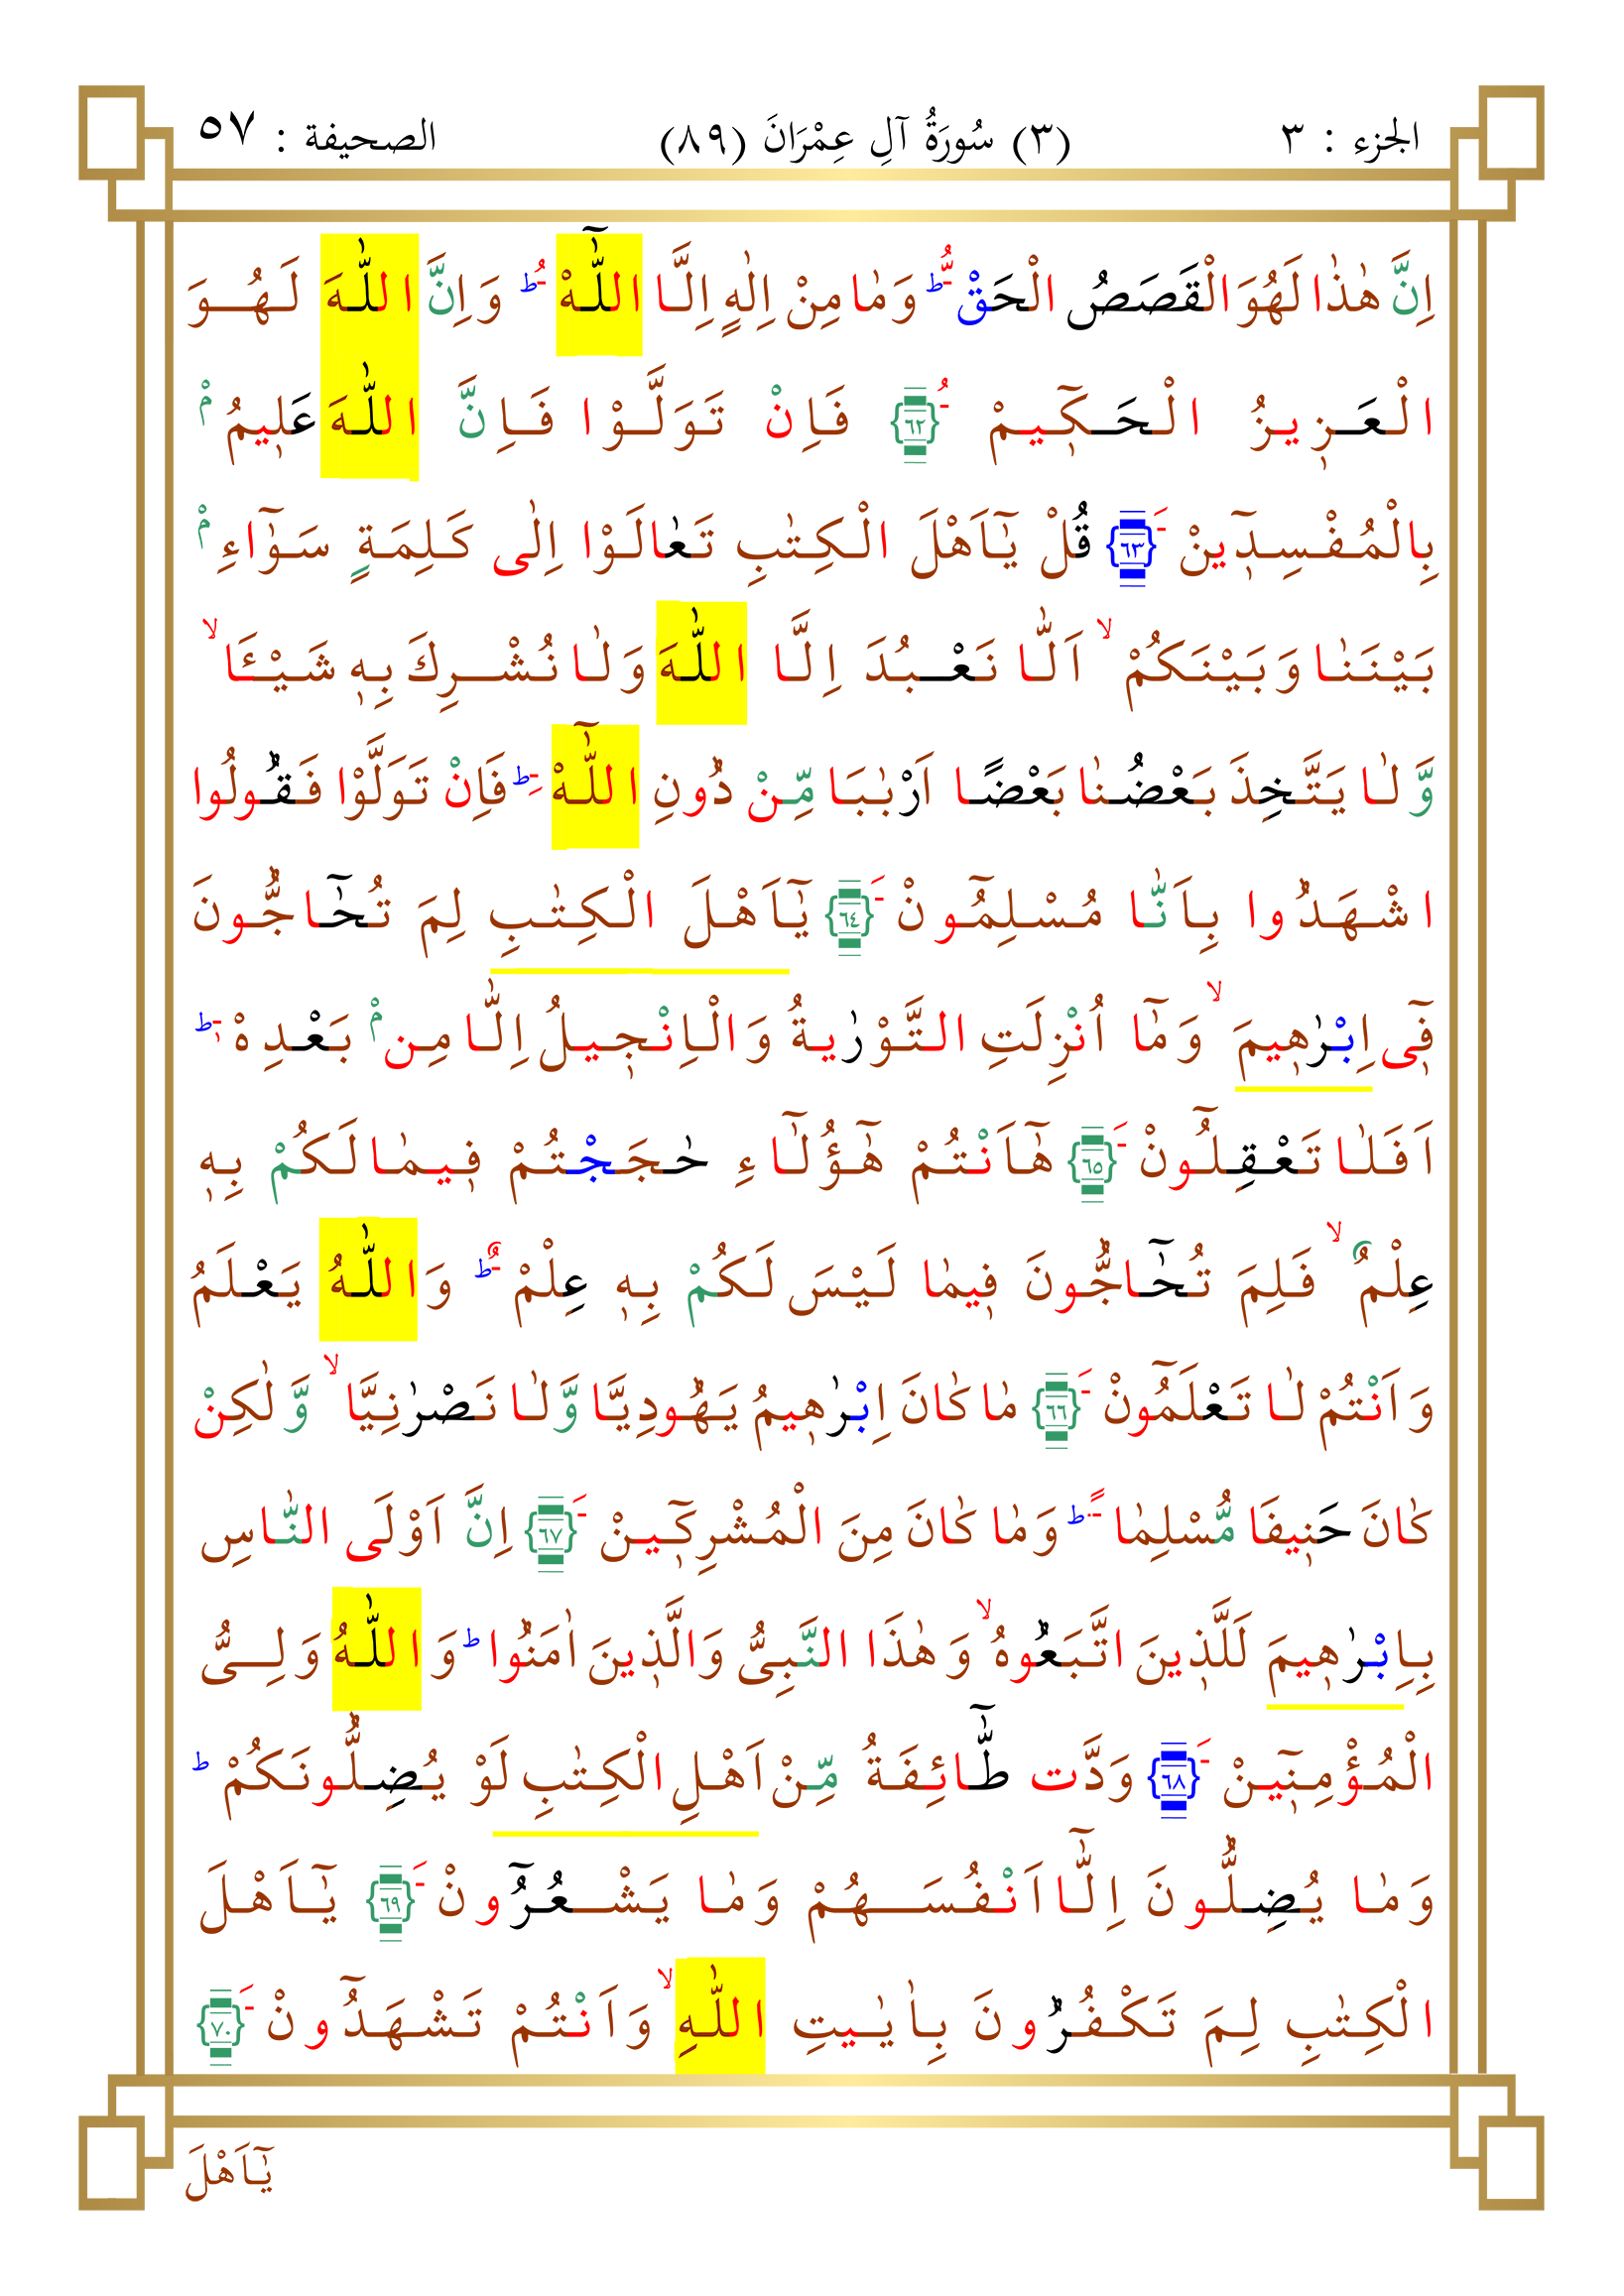 الجزء : ٣ (٣) سُورَةُ آلِ عِمْرَانَ (٨٩) الصحيفة : ٥٧
اِنَّ هٰذٰا لَهُوَ الْقَصَصُ الْحَقْ ۘؕ وَمٰا مِنْ اِلٰهٍ اِلَّا اللّٰهْ ؕ وَ اِنَّ اللّٰهَ لَهُوَ
الْعَزٖيزُ الْحَكٖيمْ ﴿٦٢﴾ فَاِنْ تَوَلَّوْا فَاِنَّ اللّٰهَ عَلٖيمُ مْ
بِالْمُفْسِدٖينْ ﴿٦٣﴾ قُلْ يٰٓاَهْلَ الْكِتٰبِ تَعٰالَوْا اِلٰى كَلِمَةٍ سَوٰٓاءِ مْ
بَيْنَنٰا وَبَيْنَكُمْ ۙ اَلّٰا نَعْبُدَ اِلَّا اللّٰهَ وَلٰا نُشْرِكَ بِهٖ شَيْـَٔا ۙ
وَّلٰا يَتَّخِذَ بَعْضُنٰا بَعْضًا اَرْبٰبَا مِّنْ دُونِ اللّٰهْ ؕ فَاِنْ تَوَلَّوْا فَقُولُوا
اشْهَدُوا بِاَنّٰا مُسْلِمُونْ ﴿٦٤﴾ يٰٓاَهْلَ الْكِتٰبِ لِمَ تُحٰٓاجُّونَ
فٖٓى اِبْرٰهٖيمَ ۙ وَمٰٓا اُنْزِلَتِ التَّوْرٰيةُ وَالْاِنْجٖيلُ اِلّٰا مِن مْ بَعْدِهْ ؕ
اَفَلٰا تَعْقِلُونْ ﴿٦٥﴾ هٰٓاَنْتُمْ هٰٓؤُلٰٓاءِ حٰجَجْتُمْ فٖيمٰا لَكُمْ بِهٖ
عِلْمٌ ۙ فَلِمَ تُحٰٓاجُّونَ فٖيمٰا لَيْسَ لَكُمْ بِهٖ عِلْمْ ؕ وَاللّٰهُ يَعْلَمُ
وَاَنْتُمْ لٰا تَعْلَمُونْ ﴿٦٦﴾ مٰا كٰانَ اِبْرٰهٖيمُ يَهُودِيَّا وَّلٰا نَصْرٰنِيَّا ۙ وَّلٰكِنْ
كٰانَ حَنٖيفَا مُّسْلِمٰا ؕ وَمٰا كٰانَ مِنَ الْمُشْرِكٖينْ ﴿٦٧﴾ اِنَّ اَوْلَى النّٰاسِ
بِاِبْرٰهٖيمَ لَلَّذٖينَ اتَّبَعُوهُ ۙ وَهٰذَا النَّبِىُّ وَالَّذٖينَ اٰمَنُوا ؕ وَاللّٰهُ وَلِىُّ
الْمُؤْمِنٖينْ ﴿٦٨﴾ وَدَّت طّٰٓائِفَةُ مِّنْ اَهْلِ الْكِتٰبِ لَوْ يُضِلُّونَكُمْ ؕ
وَمٰا يُضِلُّونَ اِلّٰٓا اَنْفُسَهُمْ وَمٰا يَشْعُرُونْ ﴿٦٩﴾ يٰٓاَهْلَ
الْكِتٰبِ لِمَ تَكْفُرُونَ بِاٰيٰيتِ اللّٰهِ ۙ وَاَنْتُمْ تَشْهَدُونْ ﴿٧٠﴾
يٰٓاَهْلَ